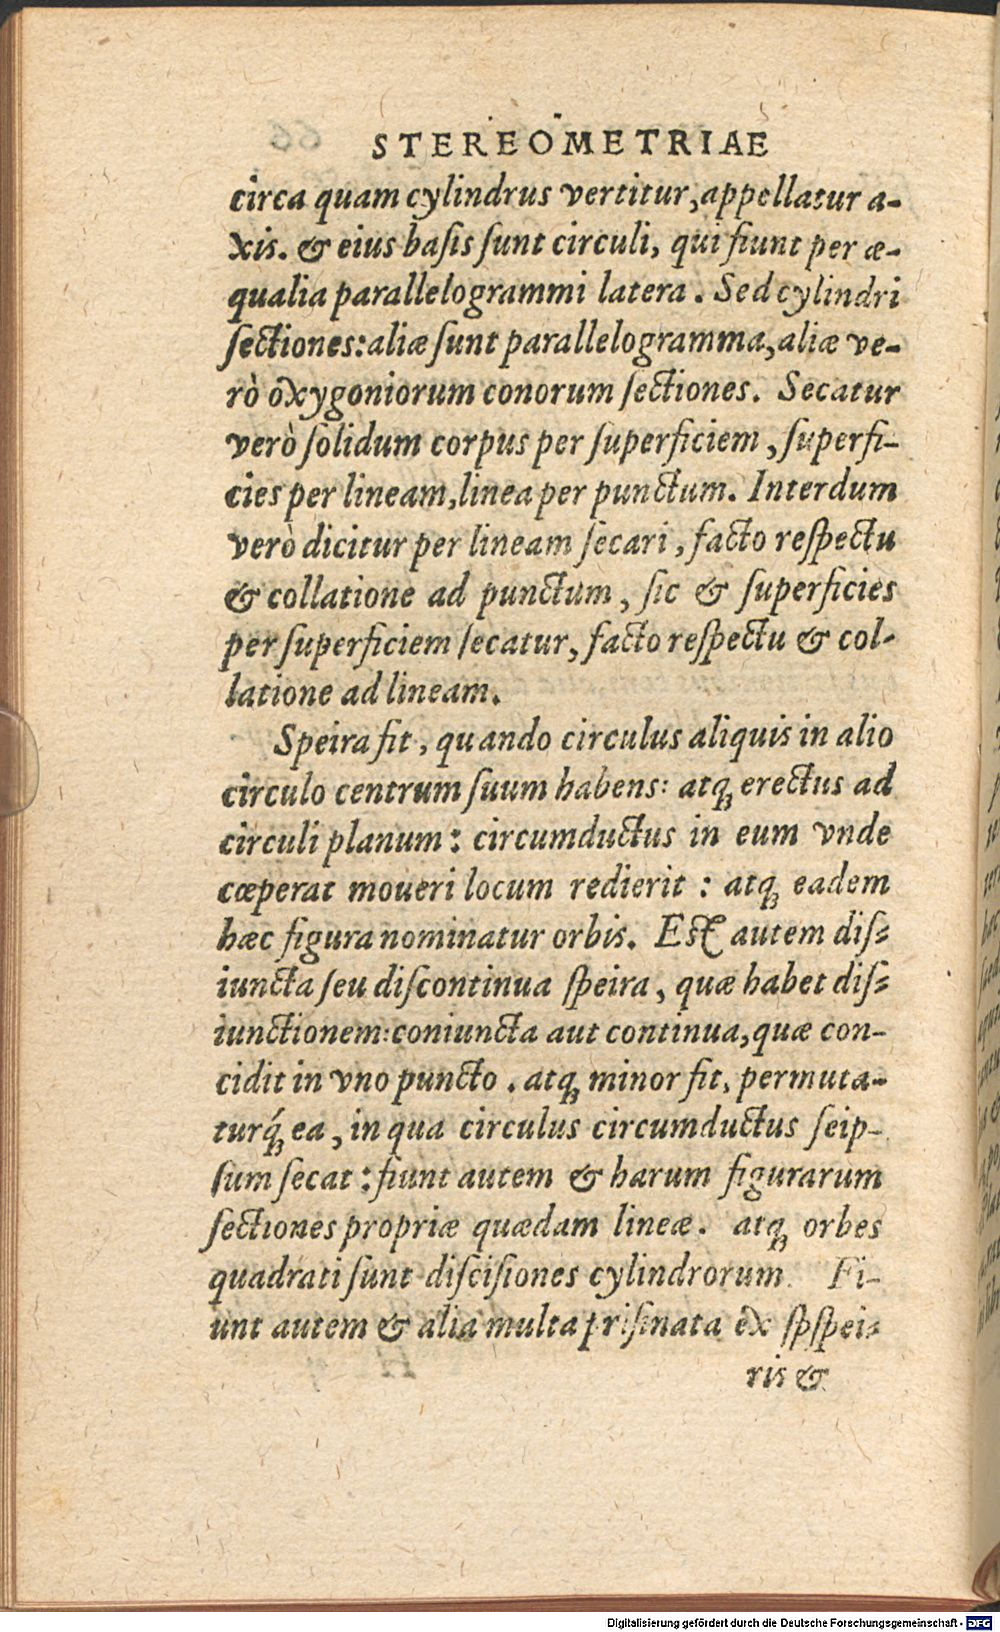 STEREOMETRIAE
circa quam cylindrus vertitur, appellatur a-
xis. & eius basis sunt circuli, qui fiunt per æ-
qualia parallelogrammi latera. Sed cylindri
sectiones: aliæ sunt parallelogramma, aliæ ve-
rò oxygoniorum conorum sectiones. Secatur
verò solidum corpus per superficiem, superfi-
cies per lineam, linea per punctum. Interdum
verò dicitur per lineam secari, facto respectu
& collatione ad punctum, sic & superficies
per superficiem secatur, facto respectu & col-
latione ad lineam.
Speira fit, quando circulus aliquis in alio
circulo centrum suum habens: atq; erectus ad
circuli planum: circumductus in eum vnde
cœperat moueri locum redierit: atq; eadem
hæc figura nominatur orbis. Est autem dis-
iuncta seu discontinua speira, quæ habet dis-
iunctionem: coniuncta aut continua, quæ con-
cidit in vno puncto. atq; minor fit, permuta-
turq́; ea, in qua circulus circumductus seip-
sum secat: fiunt autem & harum figurarum
sectiones propriæ quædam lineæ. atq; orbes
quadrati sunt discisiones cylindrorum. Fi-
unt autem & alia multa prismata ex spspei-
ris &
Digitalisierung gefördert durch die Deutsche Forschungsgemeinschaft - DFG